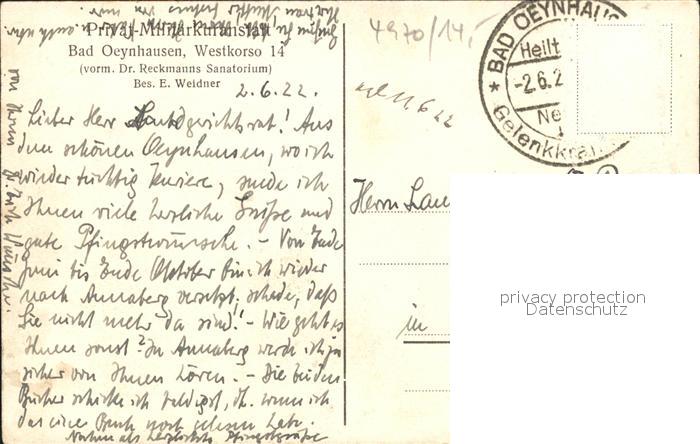 Privat-Militärkuranstalt
Bad Oeynhausen, Westkorso 14
(vorm. Dr. Reckmanns Sanatorium)
Bes. E. Weidner
2.6.22.
Lieber Herr Landgerichtsrat! Aus
dem schönen Oeynhausen, wo ich
wieder tüchtig kuriere, sende ich
Ihnen viele herzliche Grüße und
gute Pfingstwünsche. – Von Ende
Juni bis Ende Oktober bin ich wieder
nach Annaberg versetzt, schade, daß
Sie nicht mehr da sind! – Wie geht es
Ihnen sonst? In Annaberg werde ich ja
sicher von Ihnen hören. – Die beiden
Bücher schicke ich wenn ich
das eine Buch noch gelesen habe.
Nochmals herzlichste Pfingstgrüße
von Ihrem
4970/14,-
11.6.22
BAD OEYNHAUS
Heilt
-2.6.2
Ne
Gelenkkran
Herrn Lan
in
privacy protection
Datenschutz